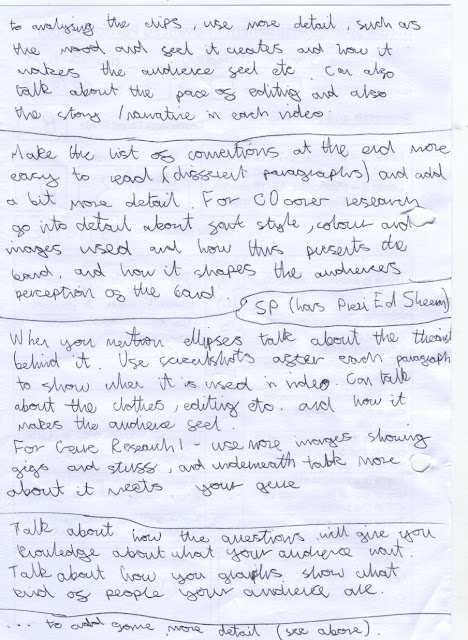 to analysing the clips, use more detail, such as
the mood and feel it creates and how it
makes the audience feel etc. Can also
talk about the pace of editing and also
the story / narrative in each video.
Make the list of conventions at the end more
easy to read (different paragraphs) and add
a bit more detail. For CD cover research
go into detail about font style, colour and
images used and how this presents the
band, and how it shapes the audiences
perception of the band.
SP (hars Prezi Ed Sheeran)
When you mention ellipses talk about the theorist
behind it. Use screenshots after each paragraph
to show when it is used in video. Can talk
about the clothes, editing etc. and how it
makes the audience feel.
For Genre Research 1 - use more images showing
gigs and stuff, and underneath talk more
about it meets your genre
Talk about how the questions will give you
knowledge about what your audience want.
Talk about how you graphs show what
kind of people your audience are.
... to add some more detail (see above).